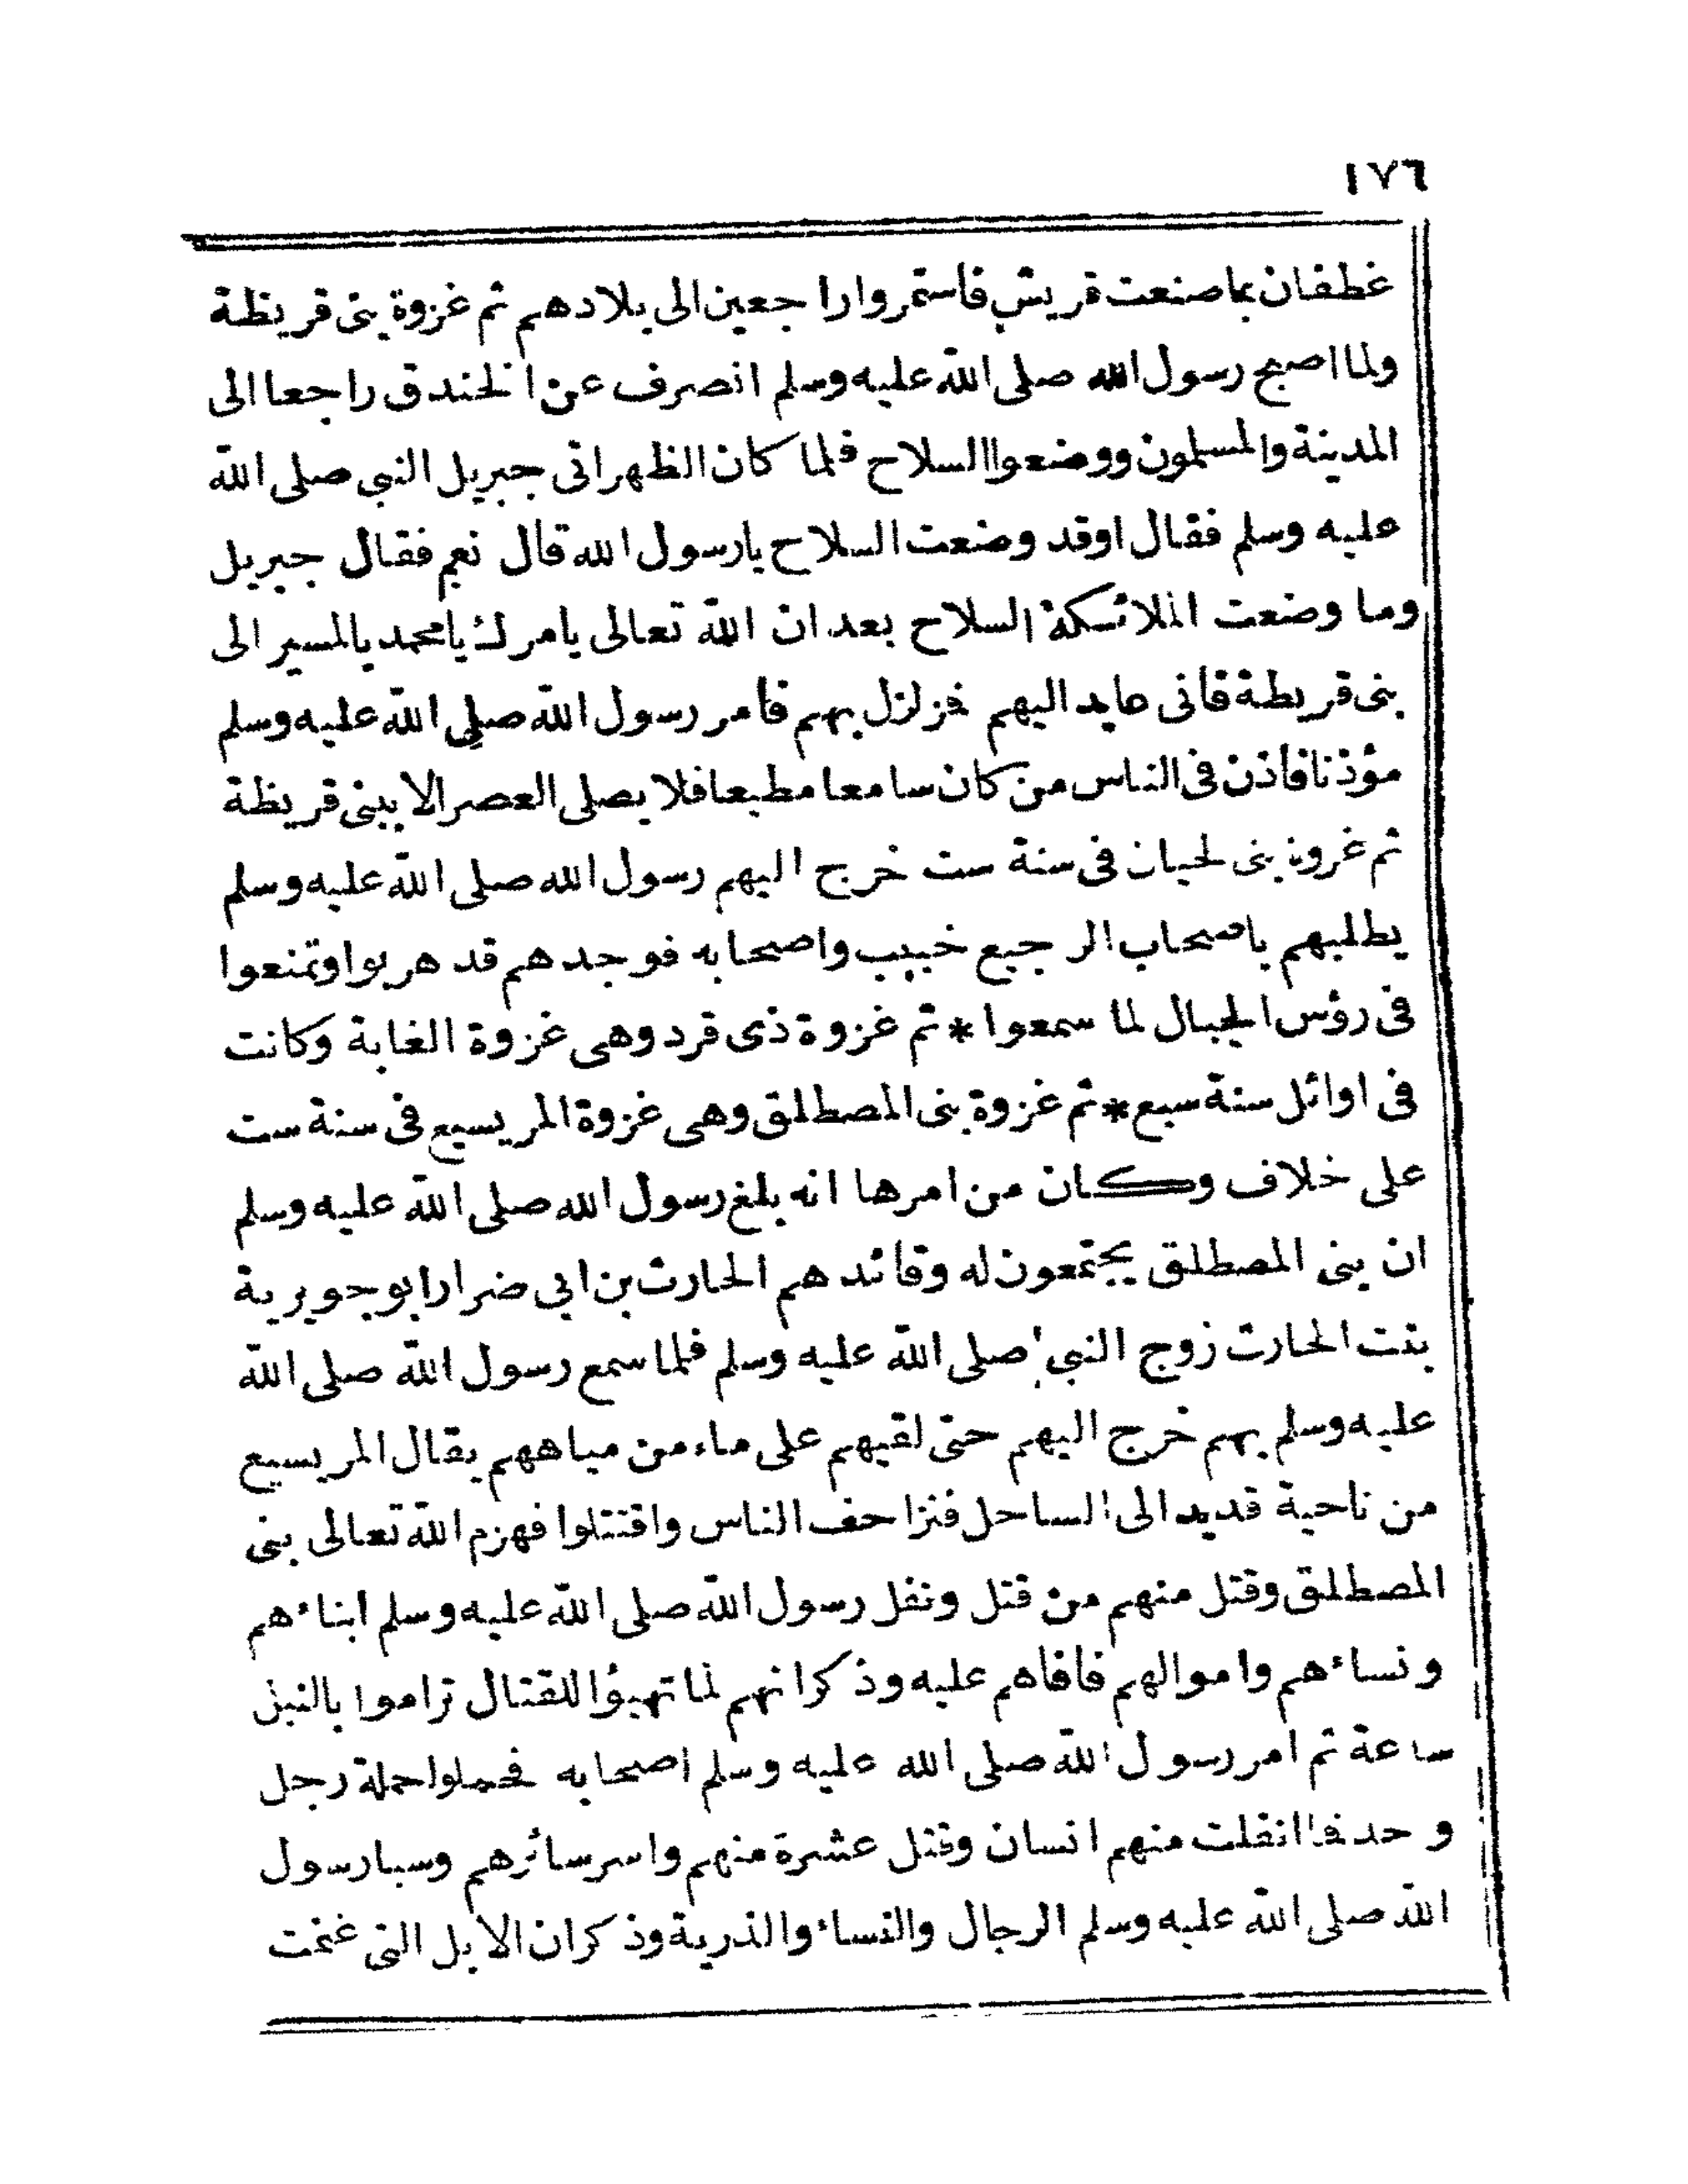 ١٧٦
غطفان بما صنعت قريش فاستمروا راجعين الى بلادهم ثم غزوة بنى قريظة
ولما اصبح رسول الله صلى الله عليه وسلم انصرف عن الخندق راجعا الى
المدينة والمسلمون ووضعوا السلاح فلما كان الظهر اتى جبريل النبي صلى الله
عليه وسلم فقال اوقد وضعت السلاح يارسول الله قال نعم فقال جبريل
وما وضعت الملائكة السلاح بعد ان الله تعالى يامرك يامحمد بالمسير الى
بنى قريظة فانى عامد اليهم فزلزل بهم فأمر رسول الله صلى الله عليه وسلم
مؤذنا فأذن فى الناس من كان سامعا مطيعا فلا يصلى العصر الا ببنى قريظة
ثم غزوة بنى لحيان فى سنة ست خرج اليهم رسول الله صلى الله عليه وسلم
يطلبهم باصحاب الرجيع خبيب واصحابه فوجدهم قد هربوا وتمنعوا
فى رؤس الجبال لما سمعوا * ثم غزوة ذى قرد وهى غزوة الغابة وكانت
فى اوائل سنة سبع * ثم غزوة بنى المصطلق وهى غزوة المريسيع فى سنة ست
على خلاف وكان من امرها انه بلغ رسول الله صلى الله عليه وسلم
ان بنى المصطلق يجتمعون له وقائدهم الحارث بن ابي ضرار ابو جويرية
بنت الحارث زوج النبي صلى الله عليه وسلم فلما سمع رسول الله صلى الله
عليه وسلم بهم خرج اليهم حتى لقيهم على ماء من مياههم يقال المريسيع
من ناحية قديد الى الساحل فتزاحف الناس واقتتلوا فهزم الله تعالى بنى
المصطلق وقتل منهم من قتل ونفل رسول الله صلى الله عليه وسلم ابناءهم
ونساءهم واموالهم فافاهم عليه وذكر انهم لما تهيؤا للقتال تراموا بالنبل
ساعة ثم امر رسول الله صلى الله عليه وسلم اصحابه فحملوا حملة رجل
وحد فما انفلت منهم انسان وقتل عشرة منهم واسر سائرهم وسبا رسول
الله صلى الله عليه وسلم الرجال والنساء والذرية وذكر ان الابل التى غنمت